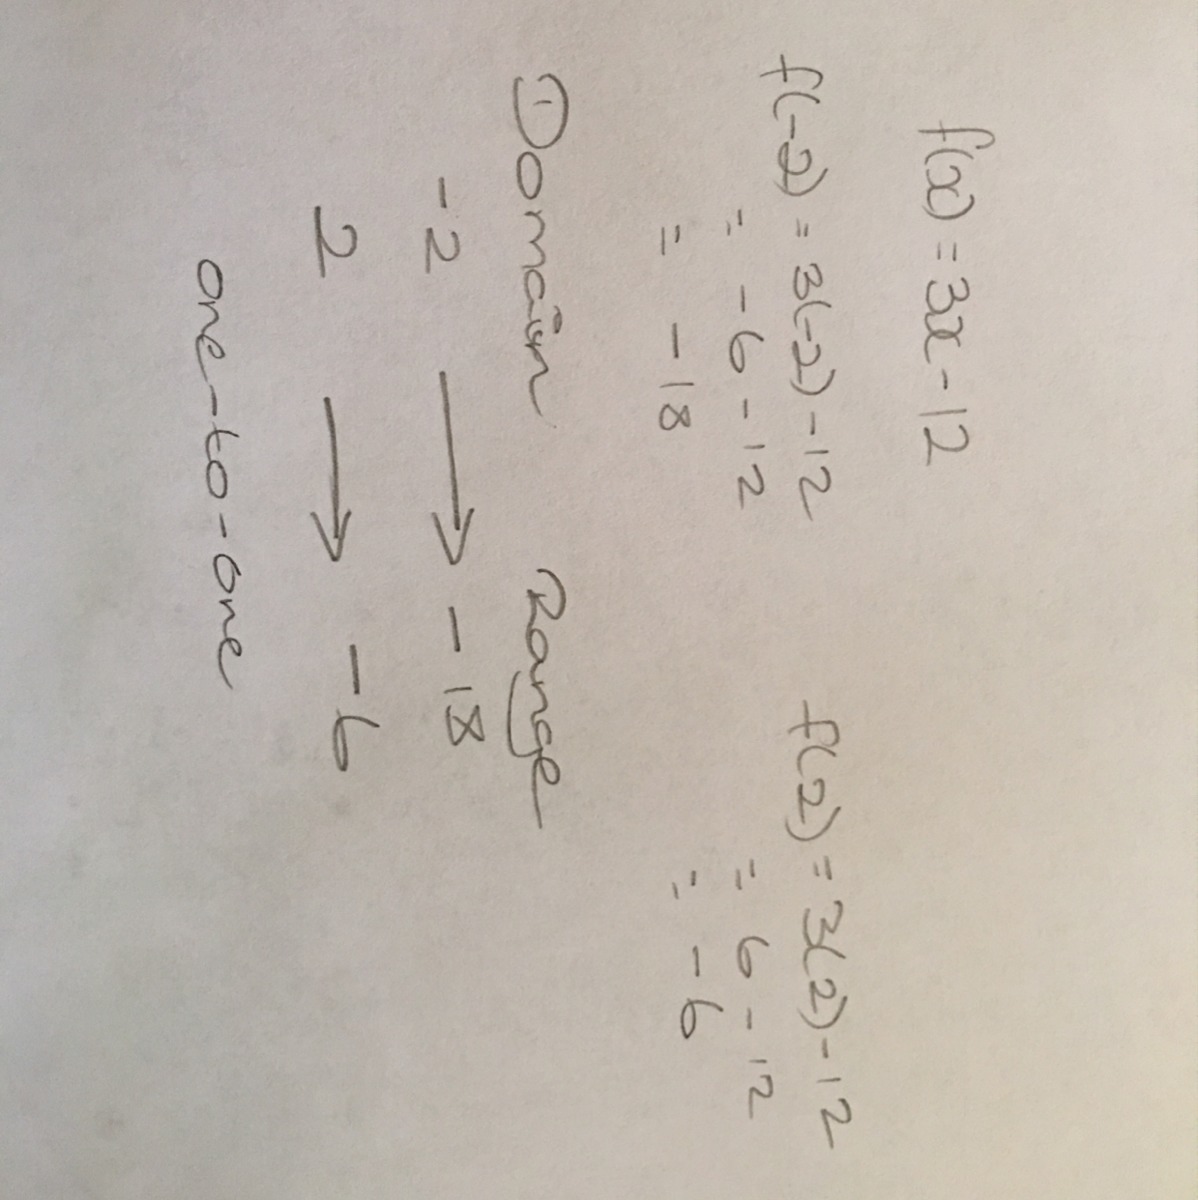 f(x) = 3x - 12
f(-2) = 3(-2) - 12 f(2) = 3(2) - 12
= -6 - 12 = 6 - 12
= -18 = -6
Domain Range
-2 → -18
2 → -6
one-to-one